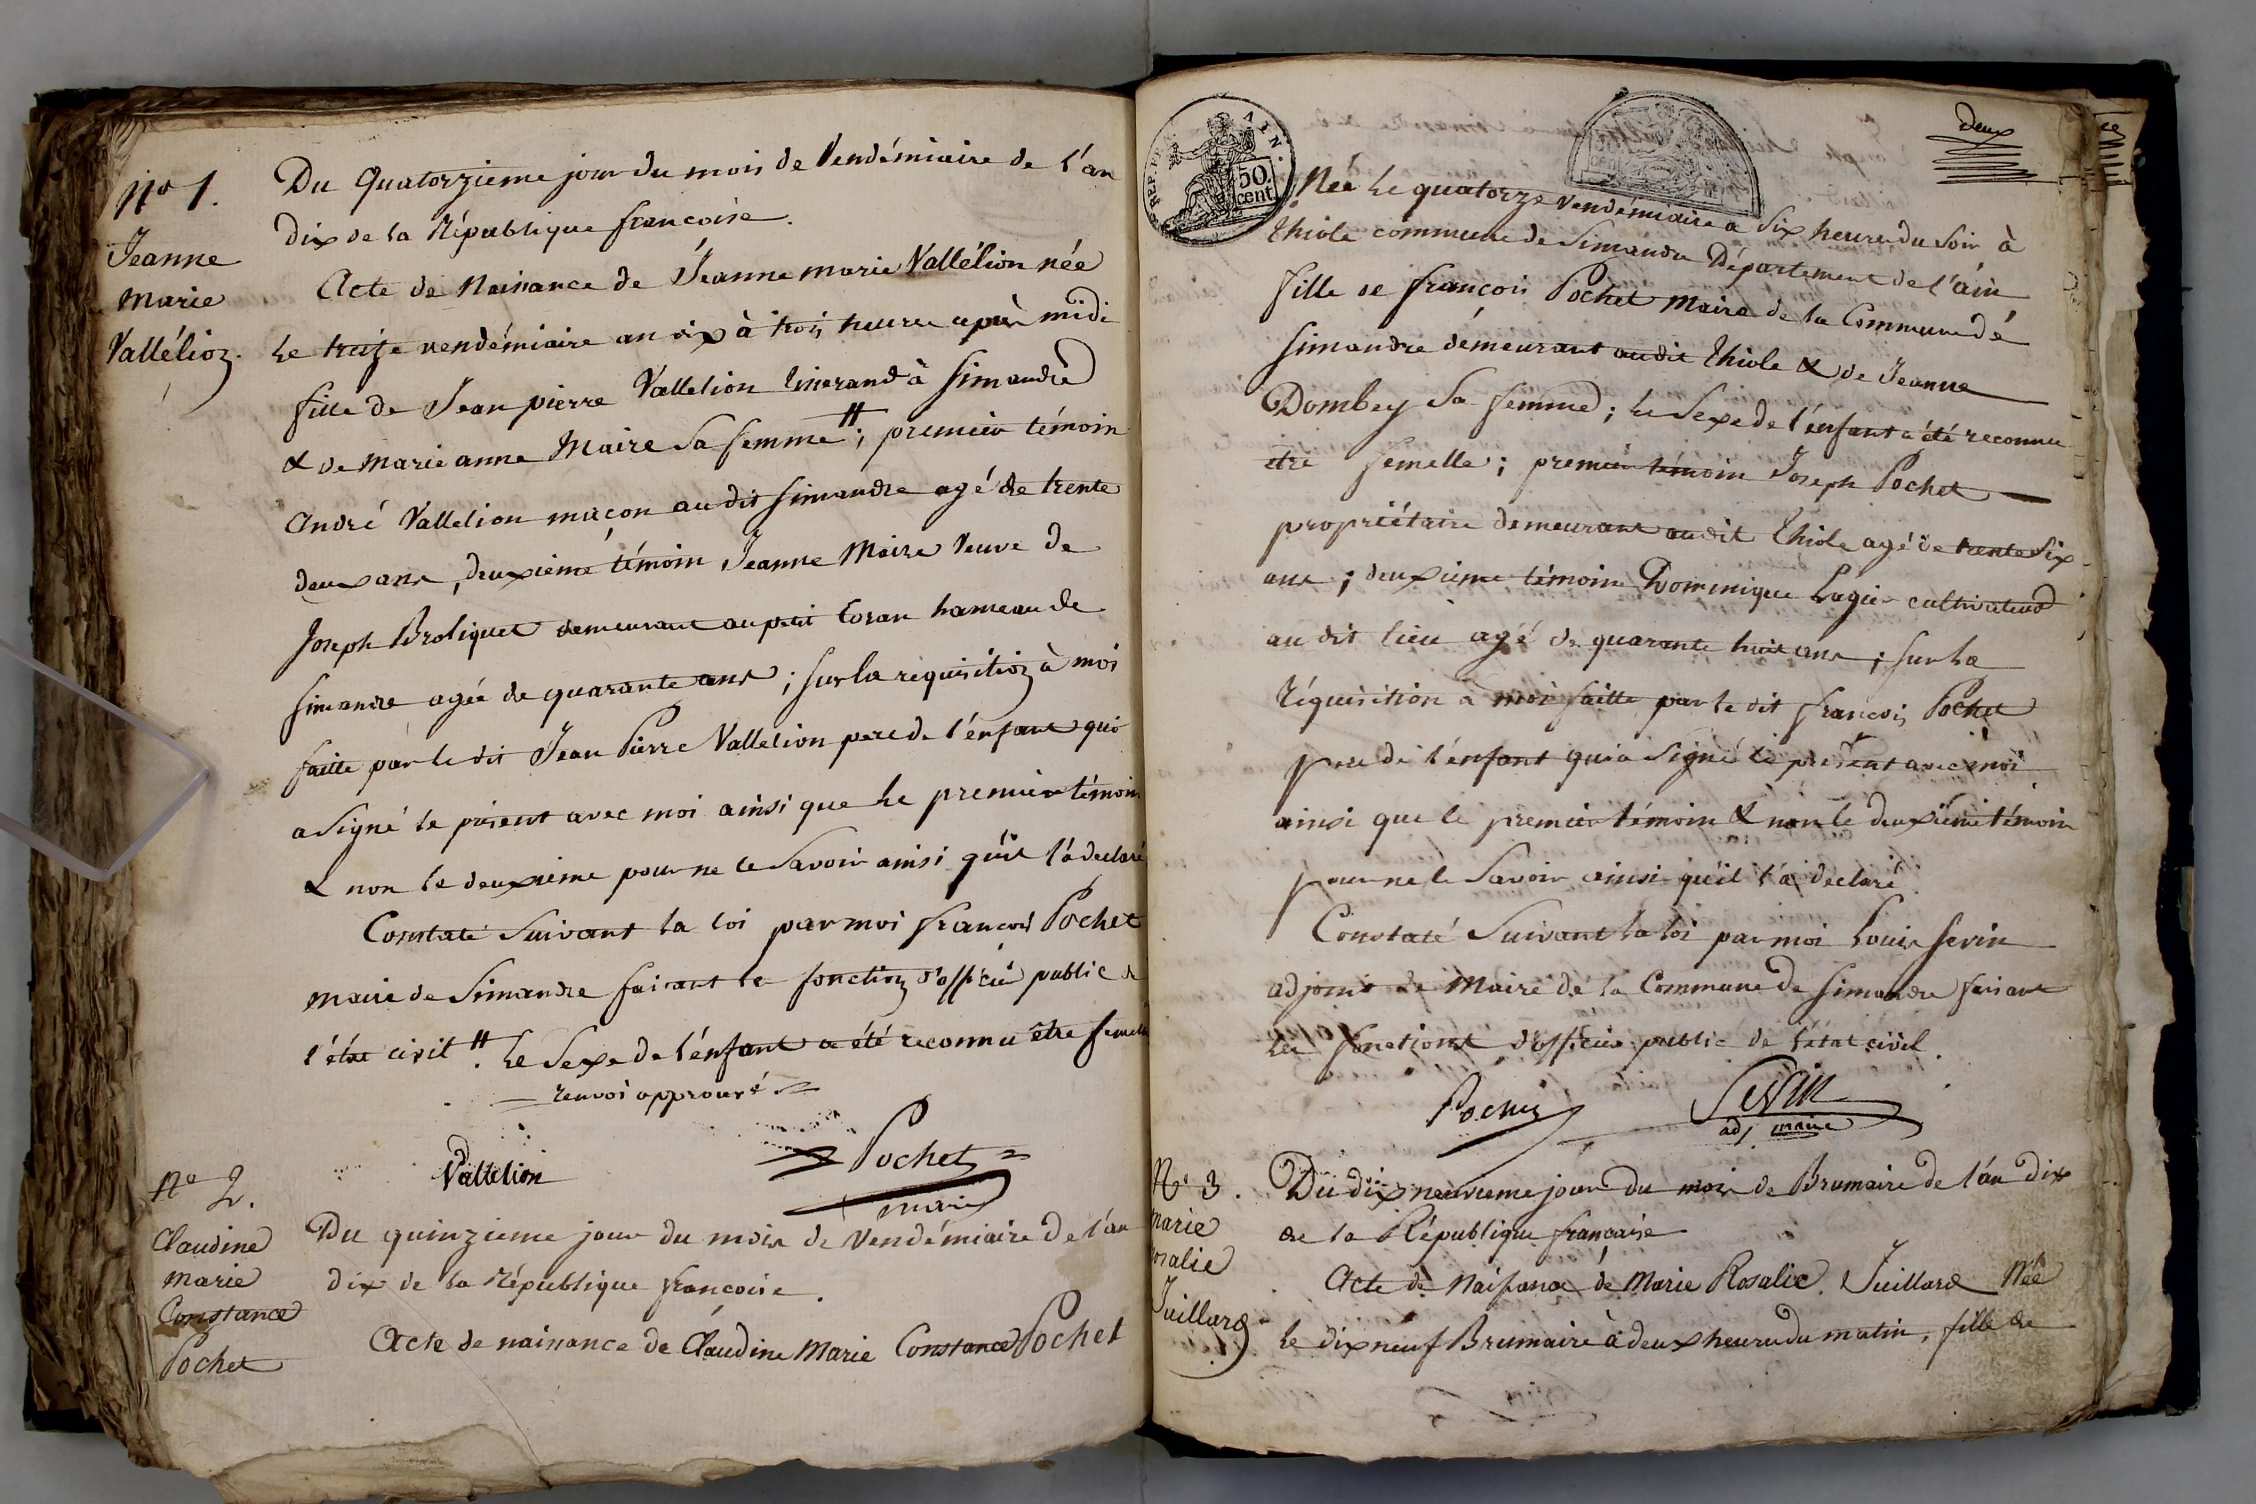 No 1.
Jeanne
Marie
Vallélion.
Du Quatorzieme jour du mois de Vendémiaire de l'an
dix de la République francoise.
Acte de Naisance de Jeanne marie Vallélion née
le treize vendémiaire an dix à trois heure après midi
fille de Jean pierre Vallelion tisserand à Simandre
& de marie anne Maire Sa femme #; premier témoin
André Vallelion macon au dit Simandre agé de trente
deux ans, deuxième témoin Jeanne Maire Veuve de
Joseph Broliquet demeurant au petit Coran hameau de
Simandre agée de quarante ans; Sur la requisition à moi
faitte par le dit Jean Pierre Vallelion pere de l'enfant qui
a Signé le présent avec moi ainsi que le premier témoin
& non le deuxième pour ne le Savoir ainsi qu'il l'a declaré
Constaté Suivant la loi par moi francois Pochet
maire de Simandre faisant la fonction d'officié public de
l'état civil #. le Sexe de l'enfant a été reconnu être femelle
renvoi approuvé
Vallelion
Pochet
maire
No 2.
Claudine
marie
Constance
Pochet
Du quinzieme jour du mois de Vendémiaire de l'an
dix de la République francoise.
Acte de naisance de Claudine Marie Constance Pochet
deux
REP. FRA. AIN.
50.
cent.
Née le quatorze vendémiaire a Six heure du Soir à
thiole commune de Simandre Département de l'ain
fille de francois Pochet Maire de la Commune de
Simandre demeurant au dit thiole & de Jeanne
Dombey Sa femme; le Sexe de l'enfant a été reconnu
etre femelle; premier témoin Joseph Pochet
propriétaire demeurant au dit thiole agé de trente Six
ans; deuxieme témoin Dominique Lagier cultivateur
au dit lieu agé de quarante huit ans; Sur la
réquisition a moi faitte par le dit francois Pochet
pere de l'enfant qui a Signé le présent avec moi
ainsi que le premier témoin & non le deuxieme témoin
pour ne le Savoir ainsi qu'il l'a declaré.
Constaté Suivant la loi par moi Louis Sevin
adjoint de Maire de la Commune de Simandre faisant
les fonctions d'officier public de l'état civil.
Pochet
Sevin
adj maire
No 3.
Marie
Rosalie
Juillard
Du dix neuvieme jour du mois de Brumaire de l'an dix
de la République francaise
Acte de Naissance de Marie Rosalie Juillard Née
le dix neuf Brumaire à deux heure du matin, fille de